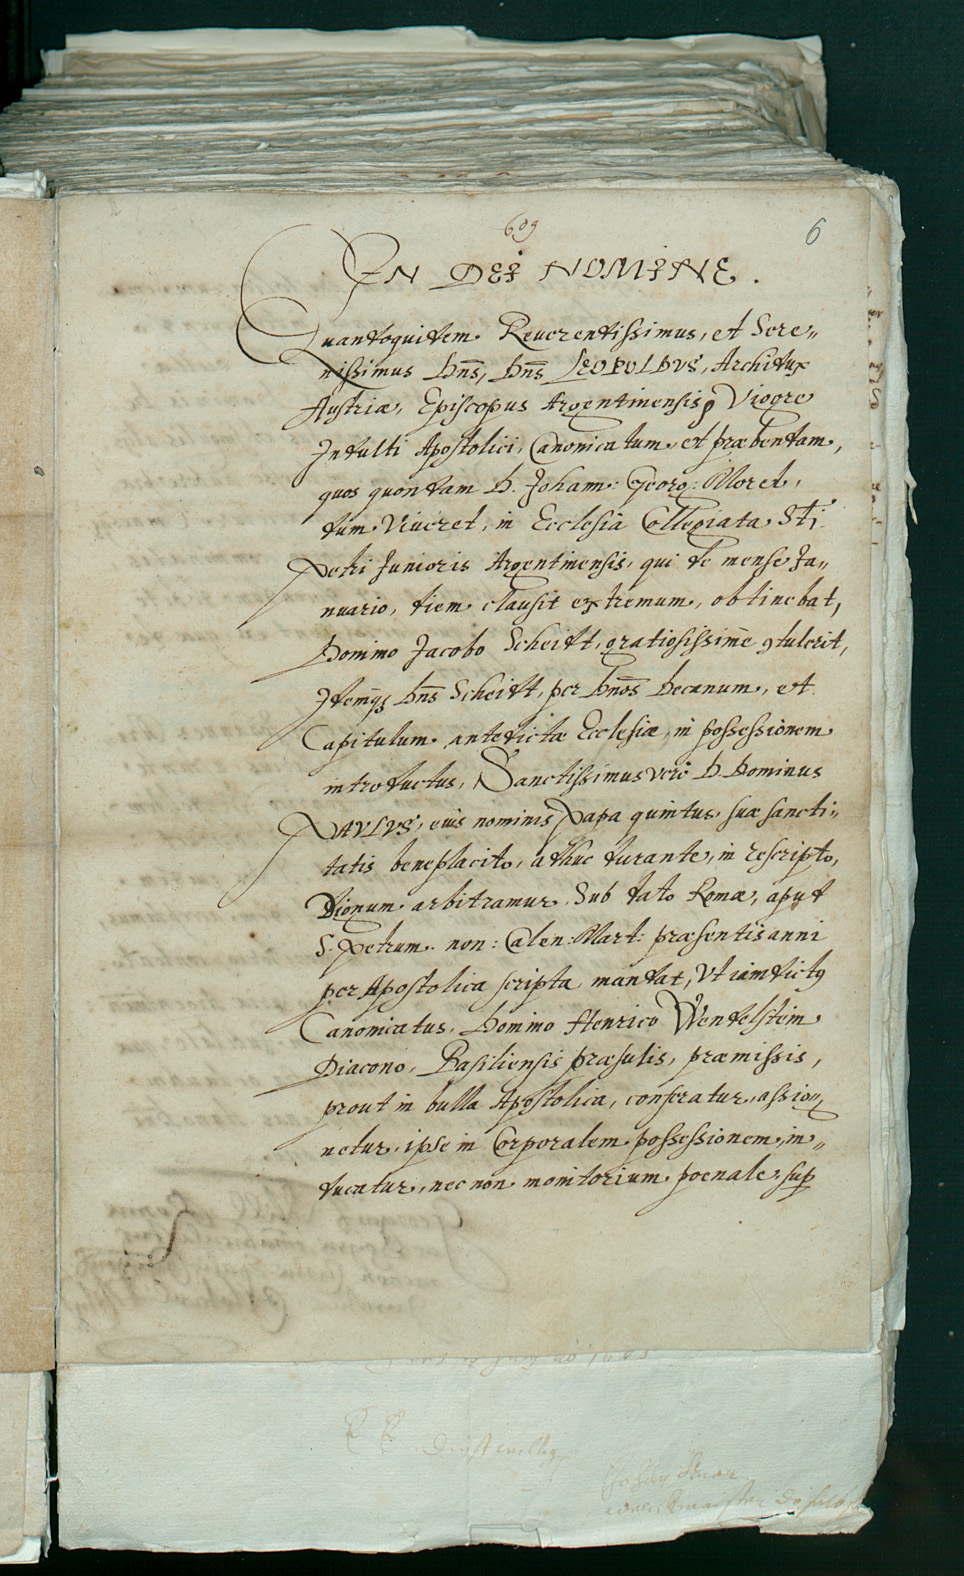 609
6
IN DEI NOMINE.
Quandoquidem Reverentissimus, et Sere„
nissimus Dn̄s, Dn̄s LEOPOLDVS, Archidux
Austriæ, Episcopus Argentinensis, Vigore
Indulti Apostolici, Canonicatum et præbendam,
quos quondam D. Johann: Georg: Moret,
dum Viveret, in Ecclesia Collegiata Sti
Petri Junioris Argentinensis, qui de mense Ja„
nuario, diem clausit extremum, obtinebat,
Domino Jacobo Scheidt, gratiosissimè 9tulerit,
Idemq́ꝫ Dn̄s Scheidt, per Dn̄os Decanum, et
Capitulum antedictæ Ecclesiæ, in possessionem
introductus, Sanctissimus verò D. Dominus
PAVLVS, eius nominis Papa quintus, suæ sancti„
tatis beneplacito, adhuc durante, in rescripto,
Dignum arbitramur. Sub dato Romæ, apud
S. Petrum. non: Calen: Mart: præsentis anni
per Apostolica scripta mandat, Vt iam dict9
Canonicatus, Domino Henrico Wendelstein
Diacono, Basiliensis præsulis, præmissis,
prout in bulla Apostolica, conferatur, assig„
netur, ipse in Corporalem possessionem, in„
ducatur, nec non monitorium poenale sup